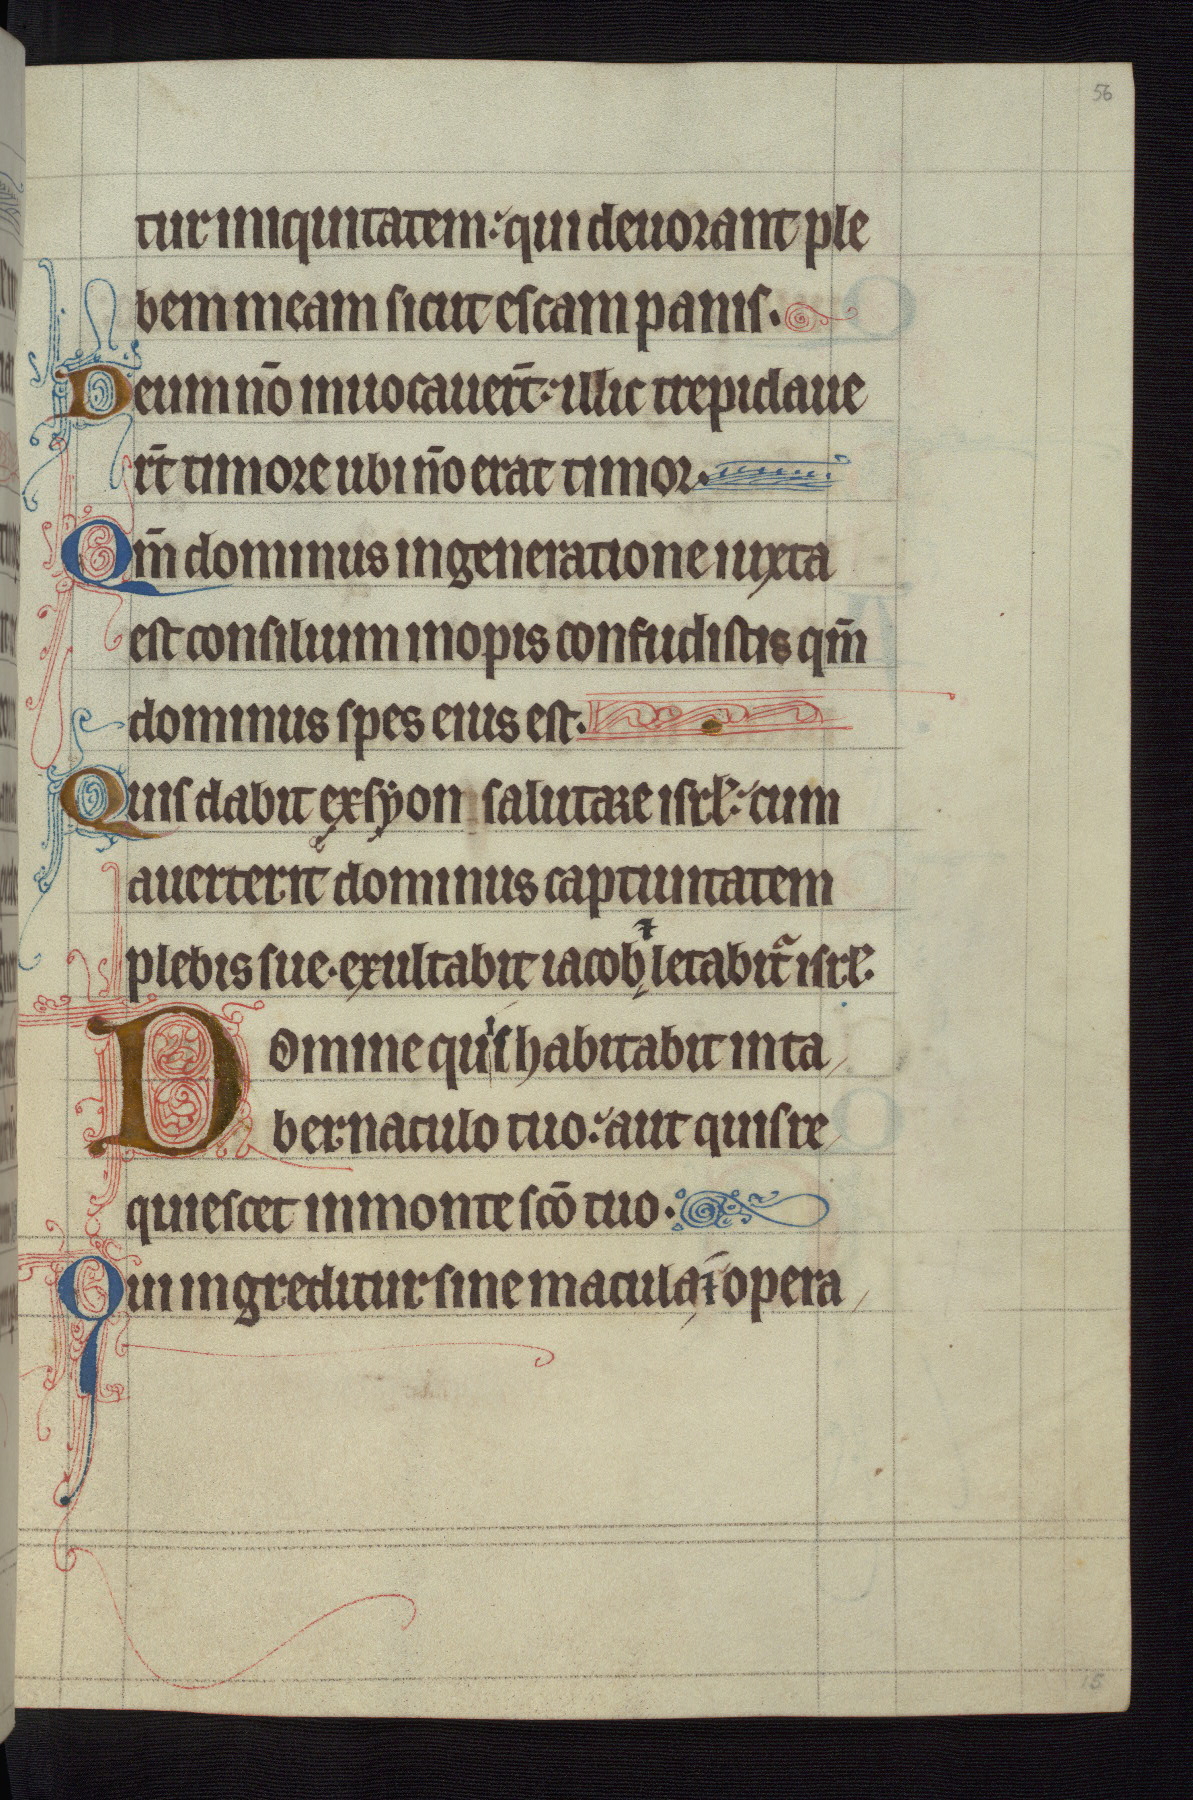 56
tur iniquitatem: qui deuorant ple
bem meam sicut escam panis.
Deum nō inuocauer̄t: illic trepidaue
r̄t timore ubi n̄o erat timor.
Qm̄ dominus in generatione iuxta
est consilium inopis confudistis qm̄
dominus spes eius est.
Quis dabit ex syon salutare isrł: cum
auerterit dominus captiuitatem
plebis sue. exultabit iacob ⁊ letabit᷑ isrł.
Domine quis habitabit in ta
bernaculo tuo: aut quis re
quiescet in monte scō tuo.
Qui ingreditur sine macula ⁊ opera
15